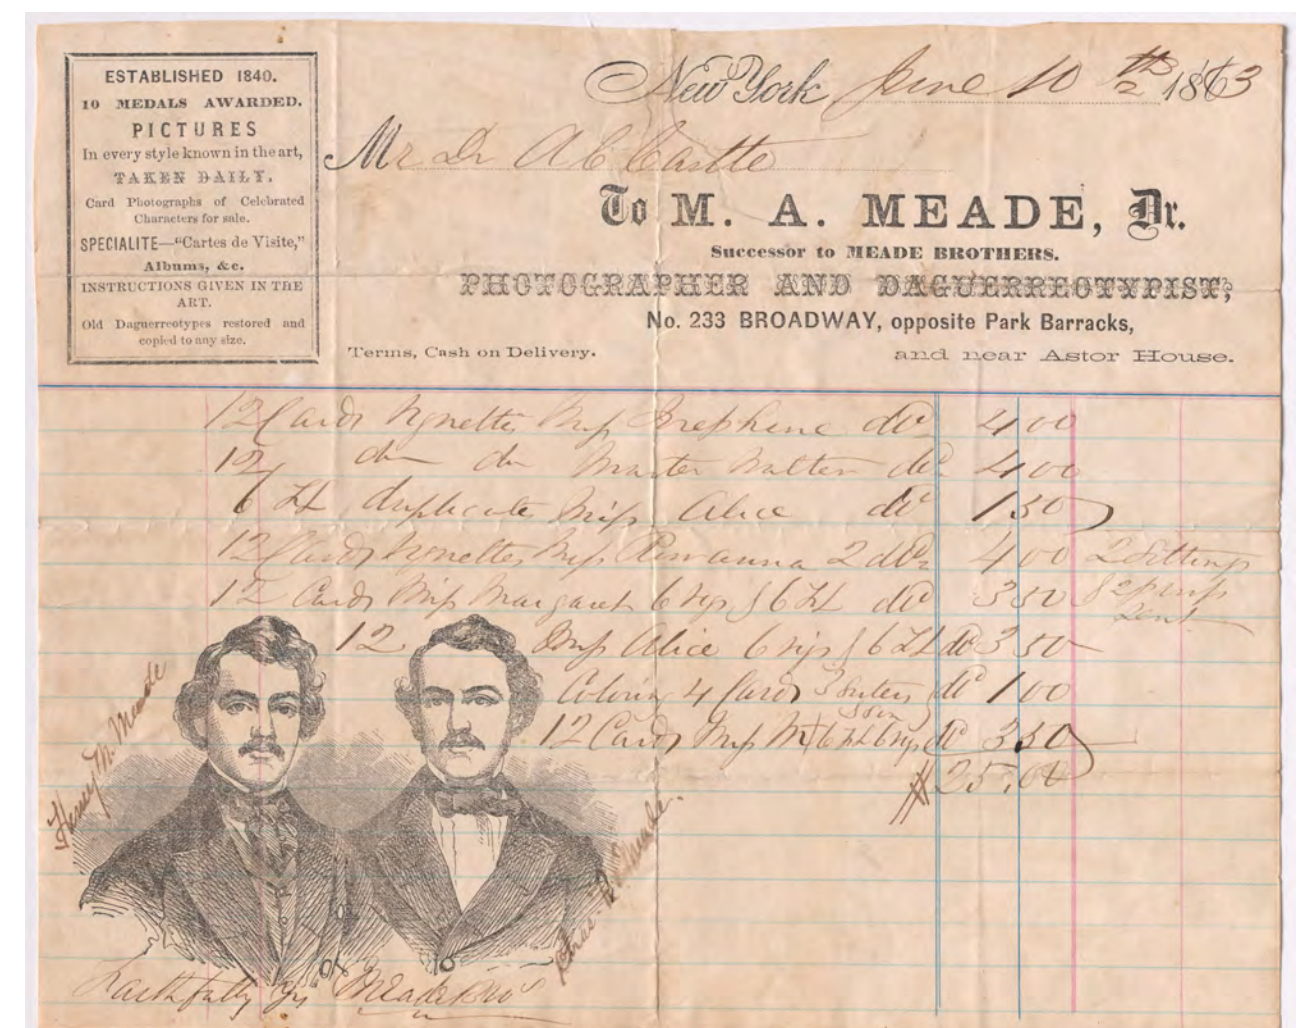 ESTABLISHED 1840.
10 MEDALS AWARDED.
PICTURES
In every style known in the art,
TAKEN DAILY.
Card Photographs of Celebrated
Characters for sale.
SPECIALITE—"Cartes de Visite,"
Albums, &c.
INSTRUCTIONS GIVEN IN THE
ART.
Old Daguerreotypes restored and
copied to any size.
New York June 10 th 1863
Mr Dr A C Castle
To M. A. MEADE, Dr.
Successor to MEADE BROTHERS.
PHOTOGRAPHER AND DAGUERREOTYPIST,
No. 233 BROADWAY, opposite Park Barracks,
Terms, Cash on Delivery.
and near Astor House.
12 Cards Vignettes Miss Josephine do 4 00
12 do do Master Walter do 4 00
6 duplicates Miss Alice do 1 50
12 Cards Vignettes Miss 2 do 4 00 2 Sittings
12 Cards Miss Margaret 6 Vigs & 6 do 3 50
12 Miss Alice 6 vigs & 6 do 3 50
Coloring 4 Cards do 1 00
12 Cards Miss M 6 6 vigs do 3 50
$25.00
Henry M. Meade
Chas. R. Meade.
Faithfully Yrs Meade Bros